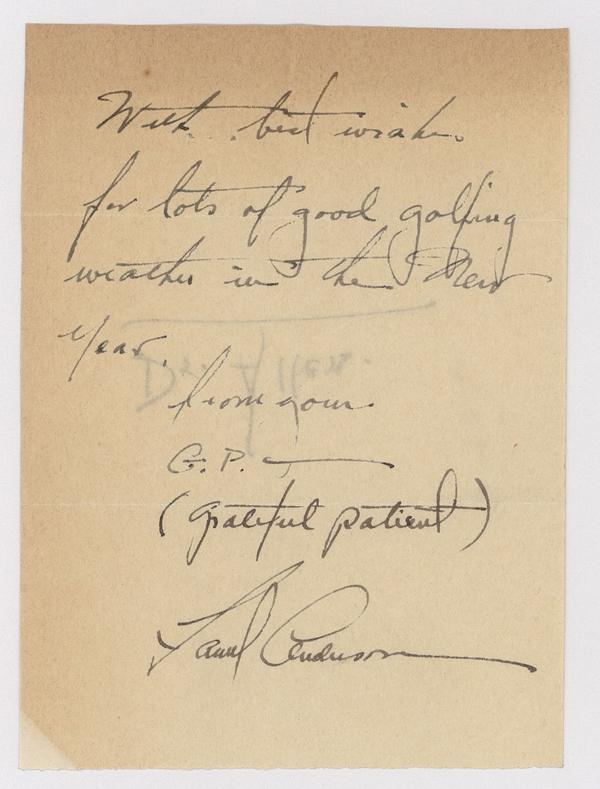 With best wishes
for lots of good golfing
weather in the New
Year.
Dr. Allen.
from your
G.P.
(grateful patient)
Anderson